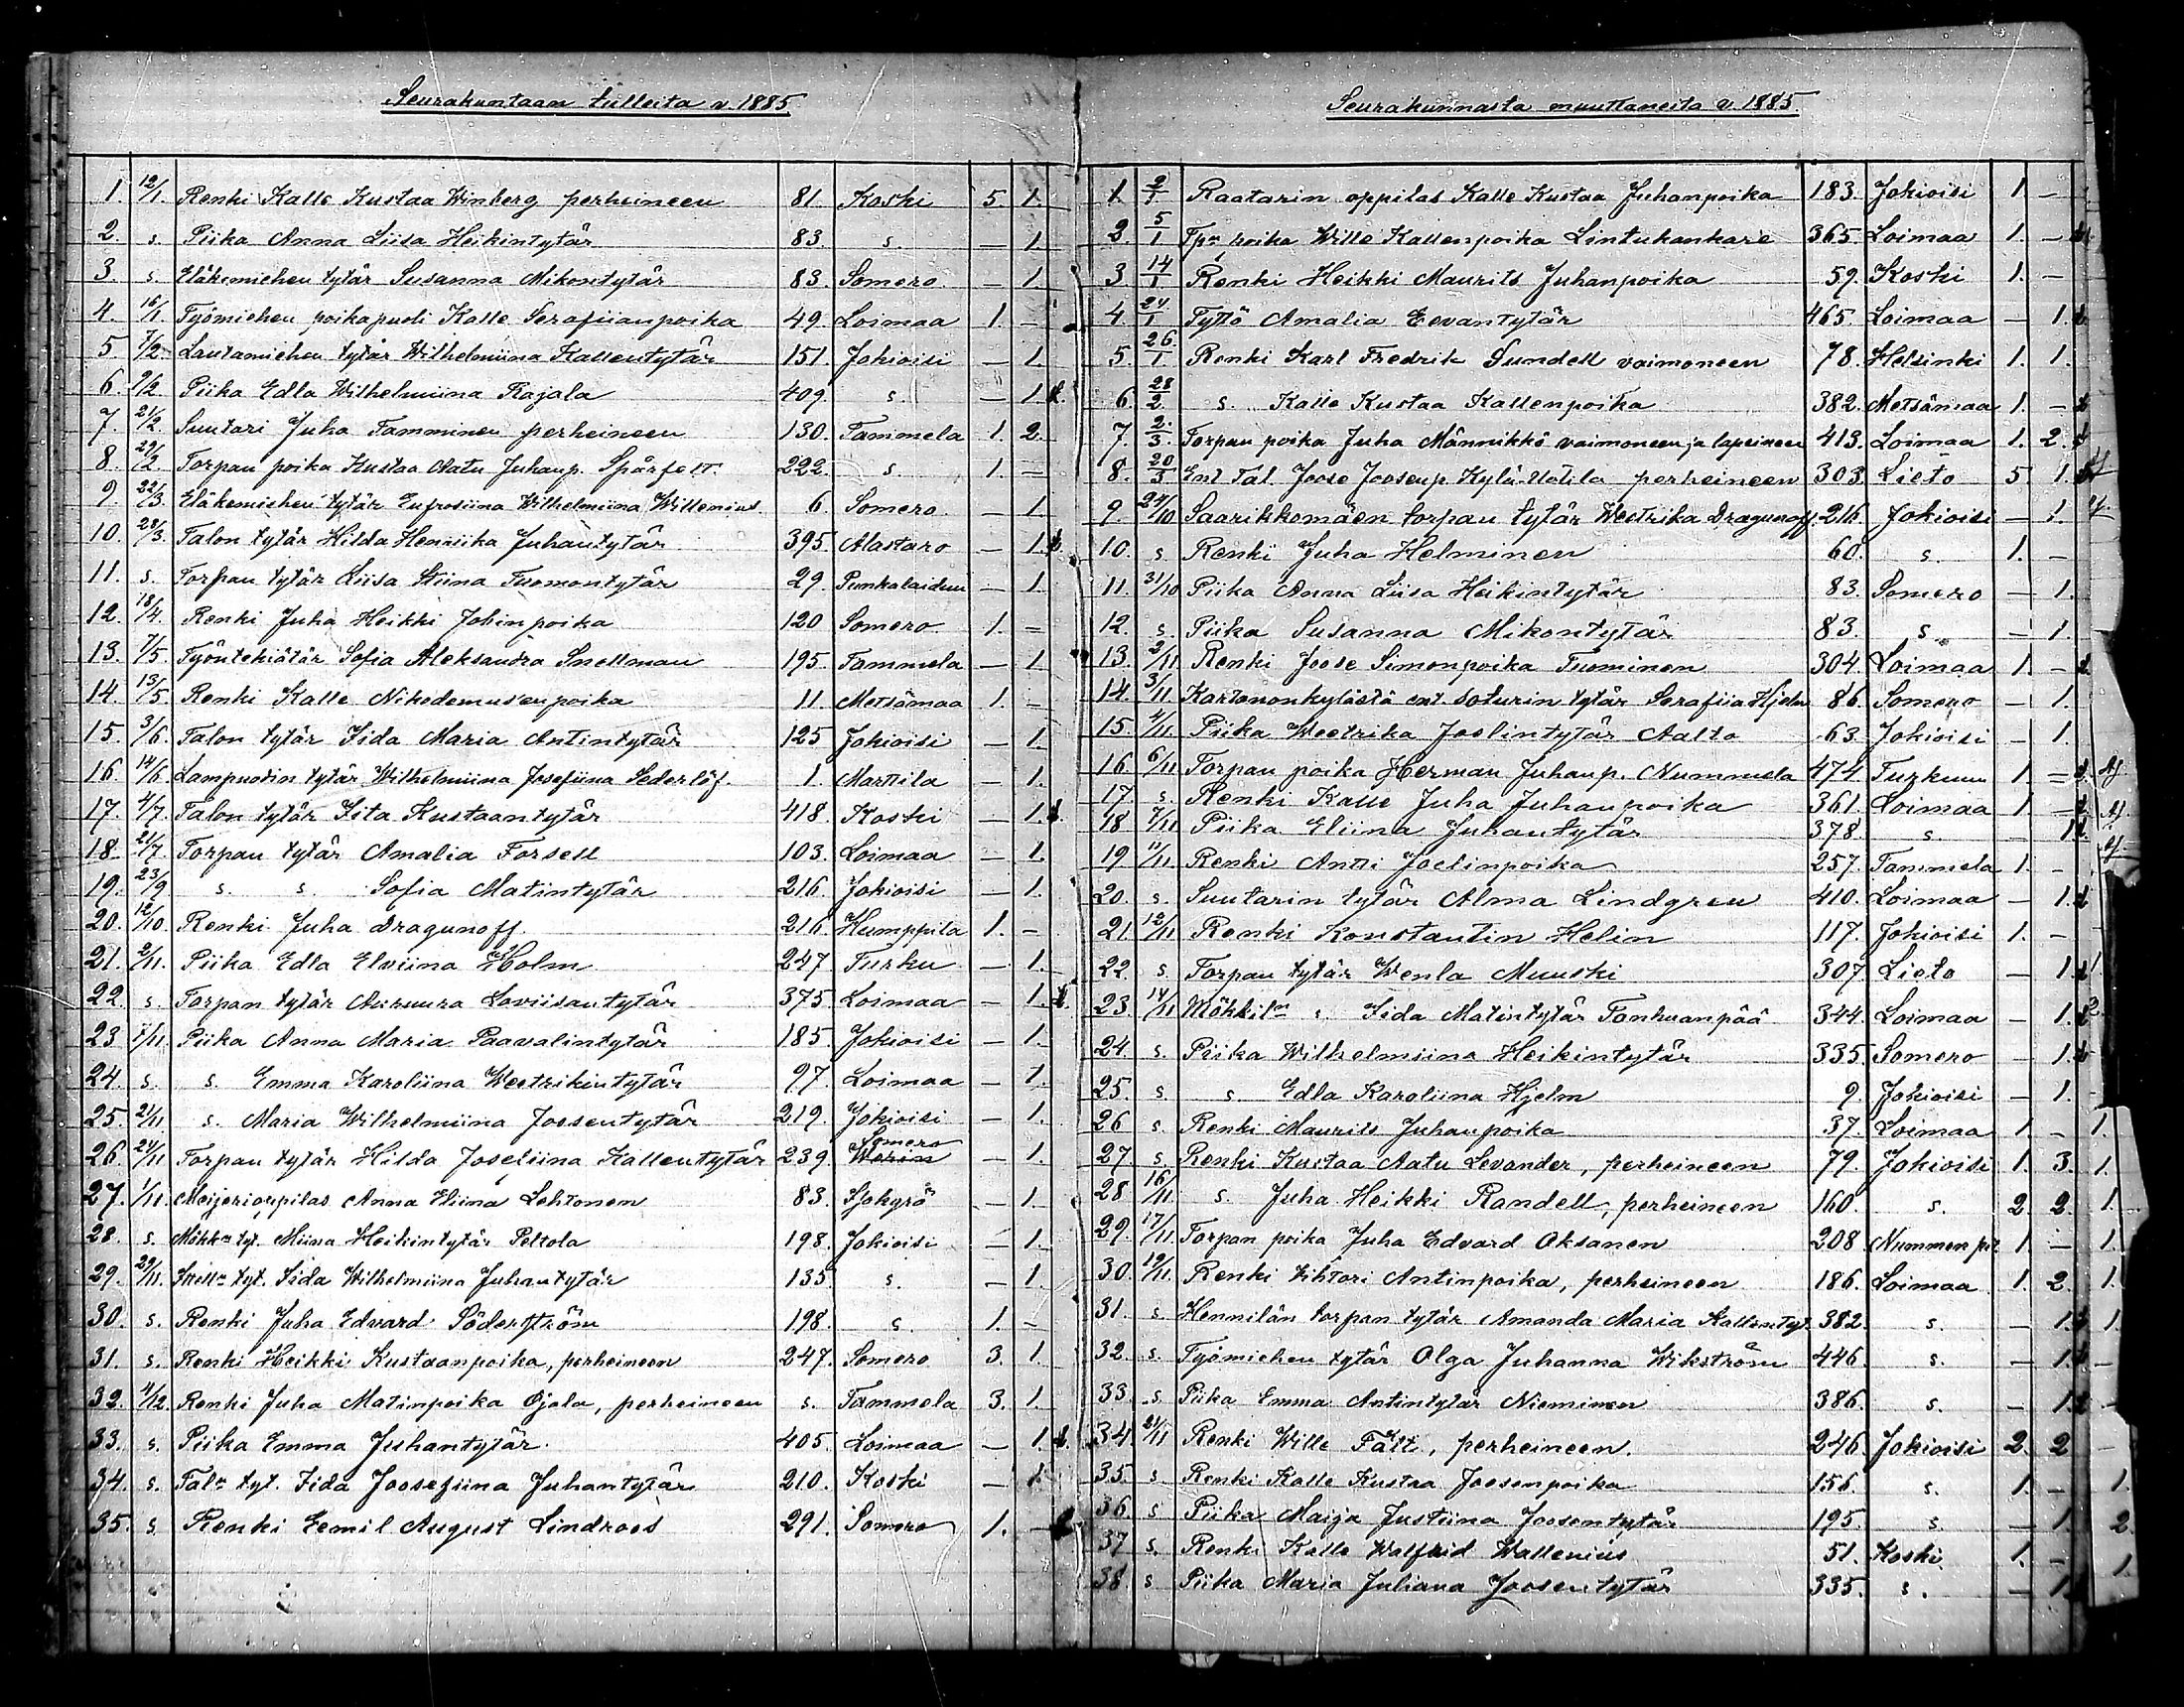 Seurakuntaan tulleita v. 1885.
1. 12/1. Renki Kalle Kustaa Winberg perheineen 81 Koski 5. 1.
2. s. Piika Anna Liisa Heikintytär 83. s. — 1.
3. s. Eläkemiehen tytär Susanna Mikontytär 83. Somero — 1.
4. 16/1. Työmiehen poikapuoli Kalle Serafiianpoika 49. Loimaa 1. —
5. 7/2. Lautamiehen tytär Wilhelmiina Kallentytär 151. Jokioisi — 1.
6. 9/2. Piika Edla Wilhelmiina Rajala 409. s. — 1.
7. 21/2 Suutari Juha Tamminen perheineen 130. Tammela 1. 2.
8. 27/2. Torpan poika Kustaa Aatu Juhanp. Spårfelt. 222. s. 1. —
9. 22/3. Eläkemiehen tytär Eufrosiina Wilhelmiina Willenius. 6. Somero — 1.
10. 28/3. Talon tytär Hilda Henriika Juhantytär 395. Alastaro — 1.
11. s. Torpan tytär Liisa Stiina Tuomontytär 29. Punkalaidun — 1.
12. 18/4. Renki Juha Heikki Jobinpoika 120 Somero 1. —
13. 7/5. Työntekiätär Sofia Aleksandra Snellman 195. Tammela — 1.
14. 13/5. Renki Kalle Nikodemuksenpoika 11. Metsämaa 1. —
15. 3/6. Talon tytär Iida Maria Antintytär 125 Jokioisi — 1.
16. 14/6. Lampuodin tytär Wilhelmiina Josefiina Sederlöf. 1. Marttila — 1.
17. 4/7. Talon tytär Iita Kustaantytär 418. Koski — 1.
18. 21/7. Torpan tytär Amalia Forsell 103. Loimaa — 1.
19. 23/9 s. s. Sofia Matintytär 216. Jokioisi — 1.
20. 12/10. Renki Juha Dragunoff. 216. Humppila 1. —
21. 2/11. Piika Edla Elviina Holm 247 Turku — 1.
22. s. Torpan tytär Loviisantytär 375. Loimaa — 1.
23 7/11. Piika Anna Maria Paavalintytär 185. Jokioisi — 1.
24. s. s. Emma Karoliina Weetrikintytär 97. Loimaa — 1.
25. 21/11 s. Maria Wilhelmiina Joosentytär 219. Jokioisi — 1.
26. 24/11 Torpan tytär Hilda Joseliina Kallentytär 239. Somero — 1.
27. 1/11. Meijerioppilas Anna Eliina Lehtonen 83. — 1.
28. s. Mökkn tyt. Miina Heikintytär Peltola 198. Jokioisi — 1.
29. 29/11. tyt. Iida Wilhelmiina Juhantytär 135. s. — 1.
30. s. Renki Juha Edvard Söderström 198. s. 1. —
31. s. Renki Heikki Kustaanpoika, perheineen 247. Somero 3. 1.
32. 4/12. Renki Juha Matinpoika Ojala, perheineen s. Tammela 3. 1.
33. s. Piika Emma Juhantytär 405. Loimaa — 1.
34. s. Taln tyt. Iida Joosefiina Juhantytär 210. Koski — 1.
35. s. Renki Eemil August Lindroos 291. Somero 1. —
Seurakunnasta muuttaneita v. 1885.
1. 2/1 Raatarin oppilas Kalle Kustaa Juhanpoika 183. Jokioisi 1. —
2. 5/1 Tpn poika Wille Kallenpoika Lintukankare 365. Loimaa 1. —
3 14/1 Renki Heikki Maurits Juhanpoika 59. Koski 1. —
4. 24/1 Tyttö Amalia Eevantytär 465. Loimaa — 1.
5. 26/1. Renki Karl Fredrik Sundell vaimoneen 78. Helsinki 1. 1.
6. 28/2. s. Kalle Kustaa Kallenpoika 382. Metsämaa 1. —
7. 2/3. Torpan poika Juha Männikkö vaimoneen ja lapsineen 413. Loimaa 1. 2.
8. 20/3 Ent Tal. Joose Joosenp. Kylä-Uotila perheineen 303. Lieto 5 1.
9. 24/10 Saarikkomäen torpan tytär Weetrika Dragunoff. 216 Jokioisi — 1.
10. s Renki Juha Helminen 60. s. 1. —
11. 31/10 Piika Anna Liisa Heikintytär 83. Somero — 1.
12. s. Piika Susanna Mikontytär 83. s. — 1.
13. 2/11 Renki Joose Simonpoika Tuominen 304. Loimaa 1. —
14. 3/11. Kartanonkylästä ent soturin tytär Serafiia Hjelm 86. Somero — 1.
15. 4/11. Piika Weetrika Joelintytär Aalto 63. Jokioisi — 1.
16. 6/11 Torpan poika Herman Juhanp. Nummela 474. Turkuun 1. —
17. s. Renki Kalle Juha Juhanpoika 361. Loimaa 1 —
18 7/11 Piika Eliina Juhantytär 378. s. — 1.
19 11/11. Renki Antti Joelinpoika 257. Tammela 1. —
20. s. Suutarin tytär Alma Lindgren 410. Loimaa — 1.
21. 12/11 Renki Konstantin Helin 117. Jokioisi 1. —
22. s. Torpan tytär Wenla Muuski 307. Lieto — 1.
23. 14/11 Mökkiln s. Iida Matintytär Tanhuanpää 344. Loimaa — 1.
24. s. Piika Wilhelmiina Heikintytär 335. Somero — 1.
25. s. s. Edla Karoliina Hjelm 9. Jokioisi — 1.
26 s. Renki Maurits Juhanpoika 37. Loimaa 1. —
27. s. Renki Kustaa Aatu Levander, perheineen 79. Jokioisi 1. 3.
28 16/11. s. Juha Heikki Randell, perheineen 160. s. 2 2.
29. 17/11. Torpan poika Juha Edvard Oksanen 208 Nummen pit 1. —
30. 19/11. Renki Vihtori Antinpoika, perheineen 186. Loimaa 1. 2.
31. s. Hennilän torpan tytär Amanda Maria Kallentyt. 382. s. — 1.
32. s. Työmiehen tytär Olga Juhanna Wikström 446. s. — 1.
33. s. Piika Emma Antintytär Nieminen 386. s. — 1.
34. 21/11 Renki Wille Fält, perheineen. 246. Jokioisi 2. 2
35. s. Renki Kalle Kustaa Joosenpoika 156. s. 1. —
36 s Piika Maija Justiina Joosentytär 195. s. — 1.
37 s. Renki Kalle Walfrid Wallenius 51. Koski 1. —
38 s Piika Maria Juliana Joosentytär 335. s. — 1.